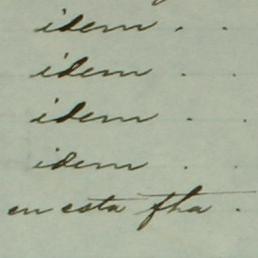 idem . .
idem . .
idem . .
idem . .
en esta fha .